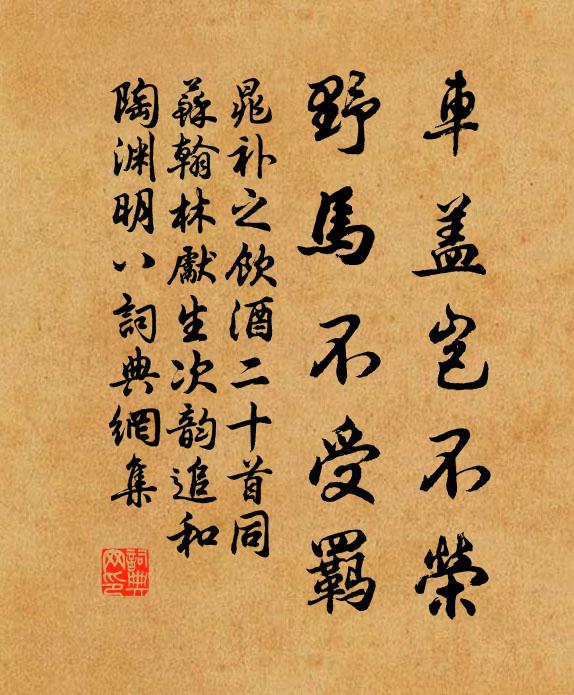 車蓋豈不榮
野馬不受羈
晁补之飲酒二十首同
蘇翰林獻生次韵追和
陶渊明八詞典網集
詞典
网印